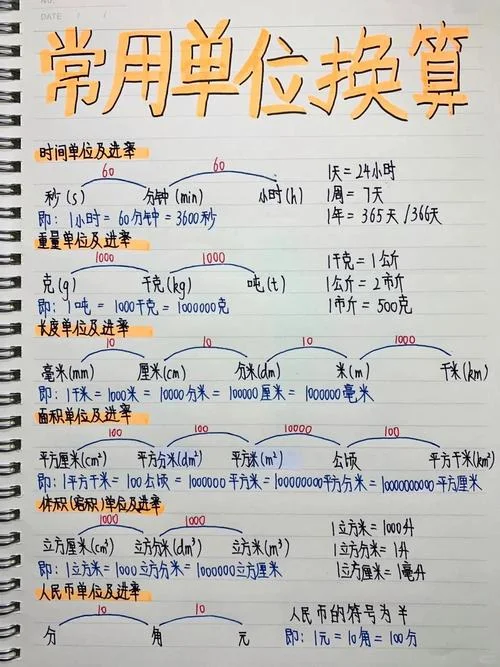 NO.
DATE / /
常用单位换算
时间单位及进率
60 60
秒(s) 分钟(min) 小时(h)
即：1小时=60分钟=3600秒
1天=24小时
1周=7天
1年=365天/366天
重量单位及进率
1000 1000
克(g) 千克(kg) 吨(t)
即：1吨=1000千克=1000000克
1千克=1公斤
1公斤=2市斤
1市斤=500克
长度单位及进率
10 10 10 1000
毫米(mm) 厘米(cm) 分米(dm) 米(m) 千米(km)
即：1千米=1000米=10000分米=100000厘米=1000000毫米
面积单位及进率
100 100 10000 100
平方厘米(cm²) 平方分米(dm²) 平方米(m²) 公顷 平方千米(km²)
即：1平方千米=100公顷=1000000平方米=100000000平方分米=10000000000平方厘米
体积(容积)单位及进率
1000 1000
立方厘米(cm³) 立方分米(dm³) 立方米(m³)
即：1立方米=1000立方分米=1000000立方厘米
1立方米=1000升
1立方分米=1升
1立方厘米=1毫升
人民币单位及进率
10 10
分 角 元
人民币的符号为¥
即：1元=10角=100分